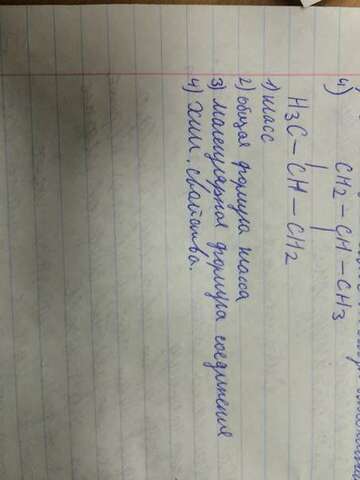 4) CH2 – CH – CH3
H3C – CH – CH2
1) класс
2) общая формула класса
3) молекулярная формула соединения
4) Хим. свойства.